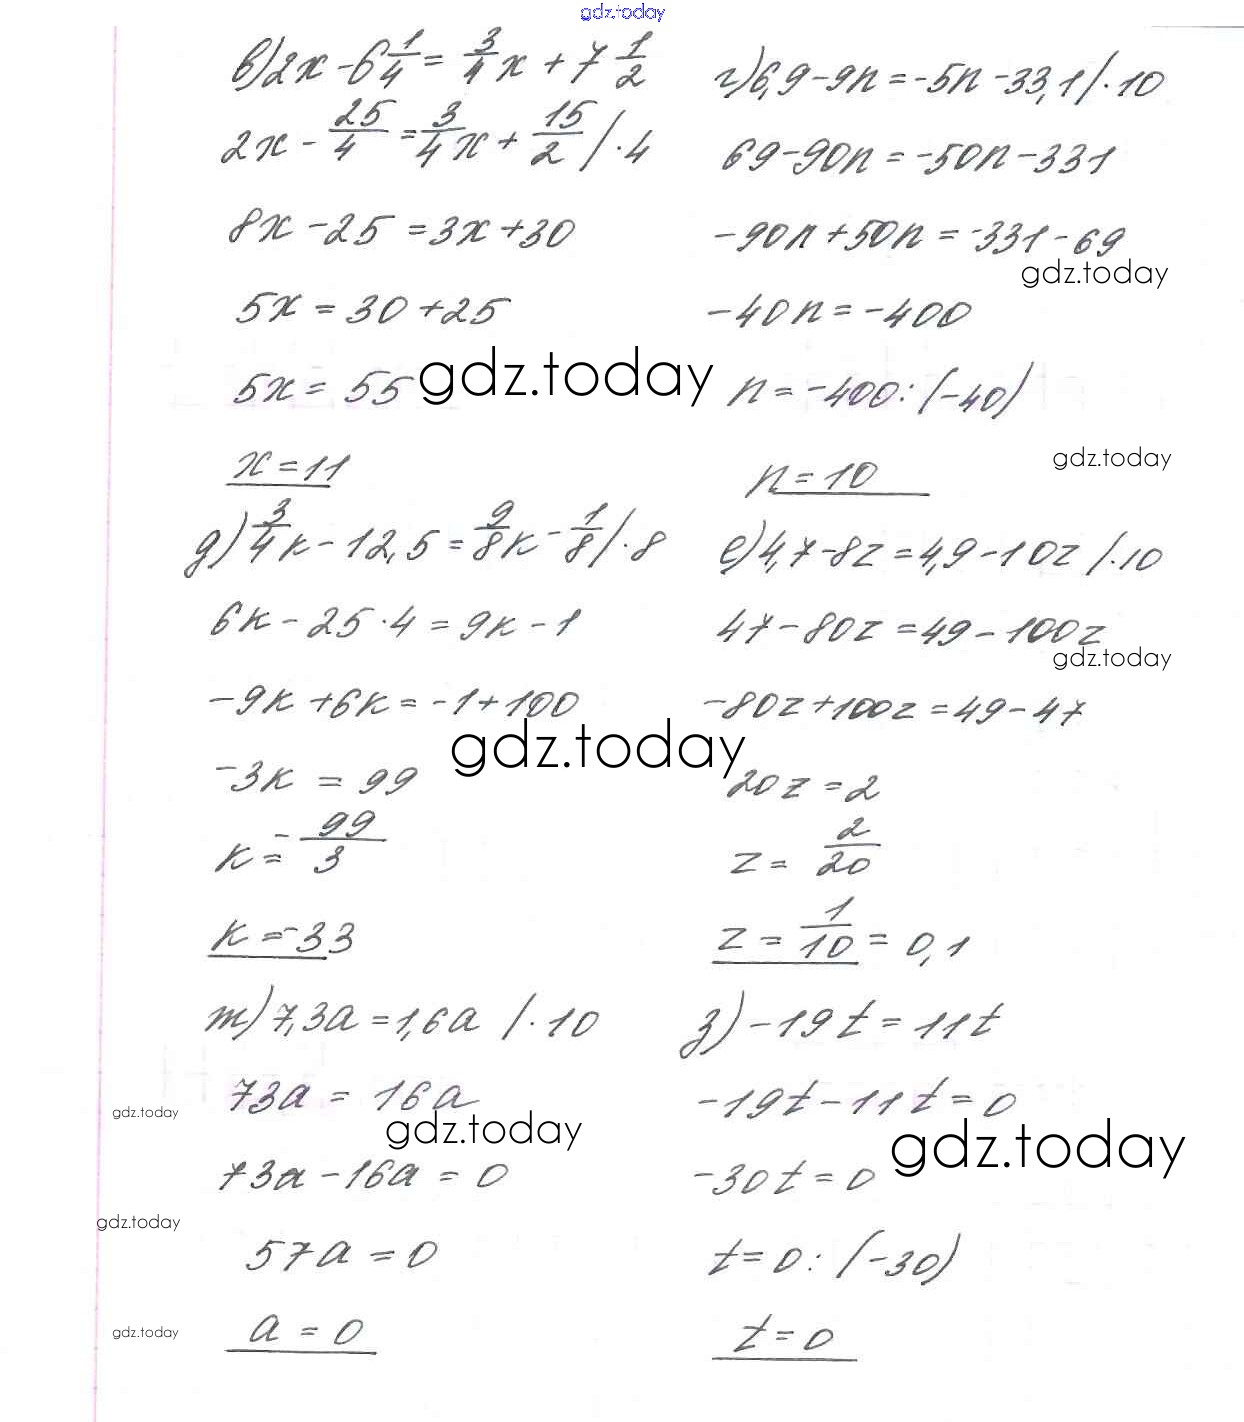 gdz.today
в) 2x - 6 1/4 = 3/4 x + 7 1/2
2x - 25/4 = 3/4 x + 15/2 / · 4
8x - 25 = 3x + 30
5x = 30 + 25
5x = 55
gdz.today
x = 11
г) 6,9 - 9n = -5n - 33,1 / · 10
69 - 90n = -50n - 331
-90n + 50n = -331 - 69
gdz.today
-40n = -400
n = -400 : (-40)
gdz.today
n = 10
д) 3/4 к - 12,5 = 9/8 к - 1/8 / · 8
6к - 25 · 4 = 9к - 1
-9к + 6к = -1 + 100
gdz.today
-3к = 99
к = - 99/3
к = -33
е) 4,7 - 8z = 4,9 - 10z / · 10
47 - 80z = 49 - 100z
gdz.today
-80z + 100z = 49 - 47
20z = 2
z = 2/20
z = 1/10 = 0,1
ж) 7,3a = 1,6a / · 10
73a = 16a
gdz.today
gdz.today
73a - 16a = 0
gdz.today
57a = 0
gdz.today
a = 0
з) -19t = 11t
-19t - 11t = 0
gdz.today
-30t = 0
t = 0 : (-30)
t = 0